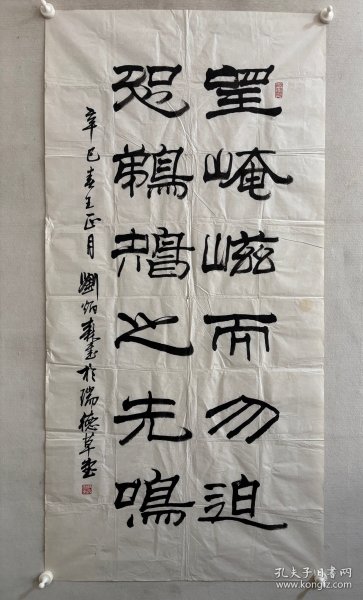 望崦嵫而勿迫
恐鵜鴂之先鳴
辛巳春王正月劉炳森書於瑞德草堂
孔夫子旧书网
www.kongfz.com